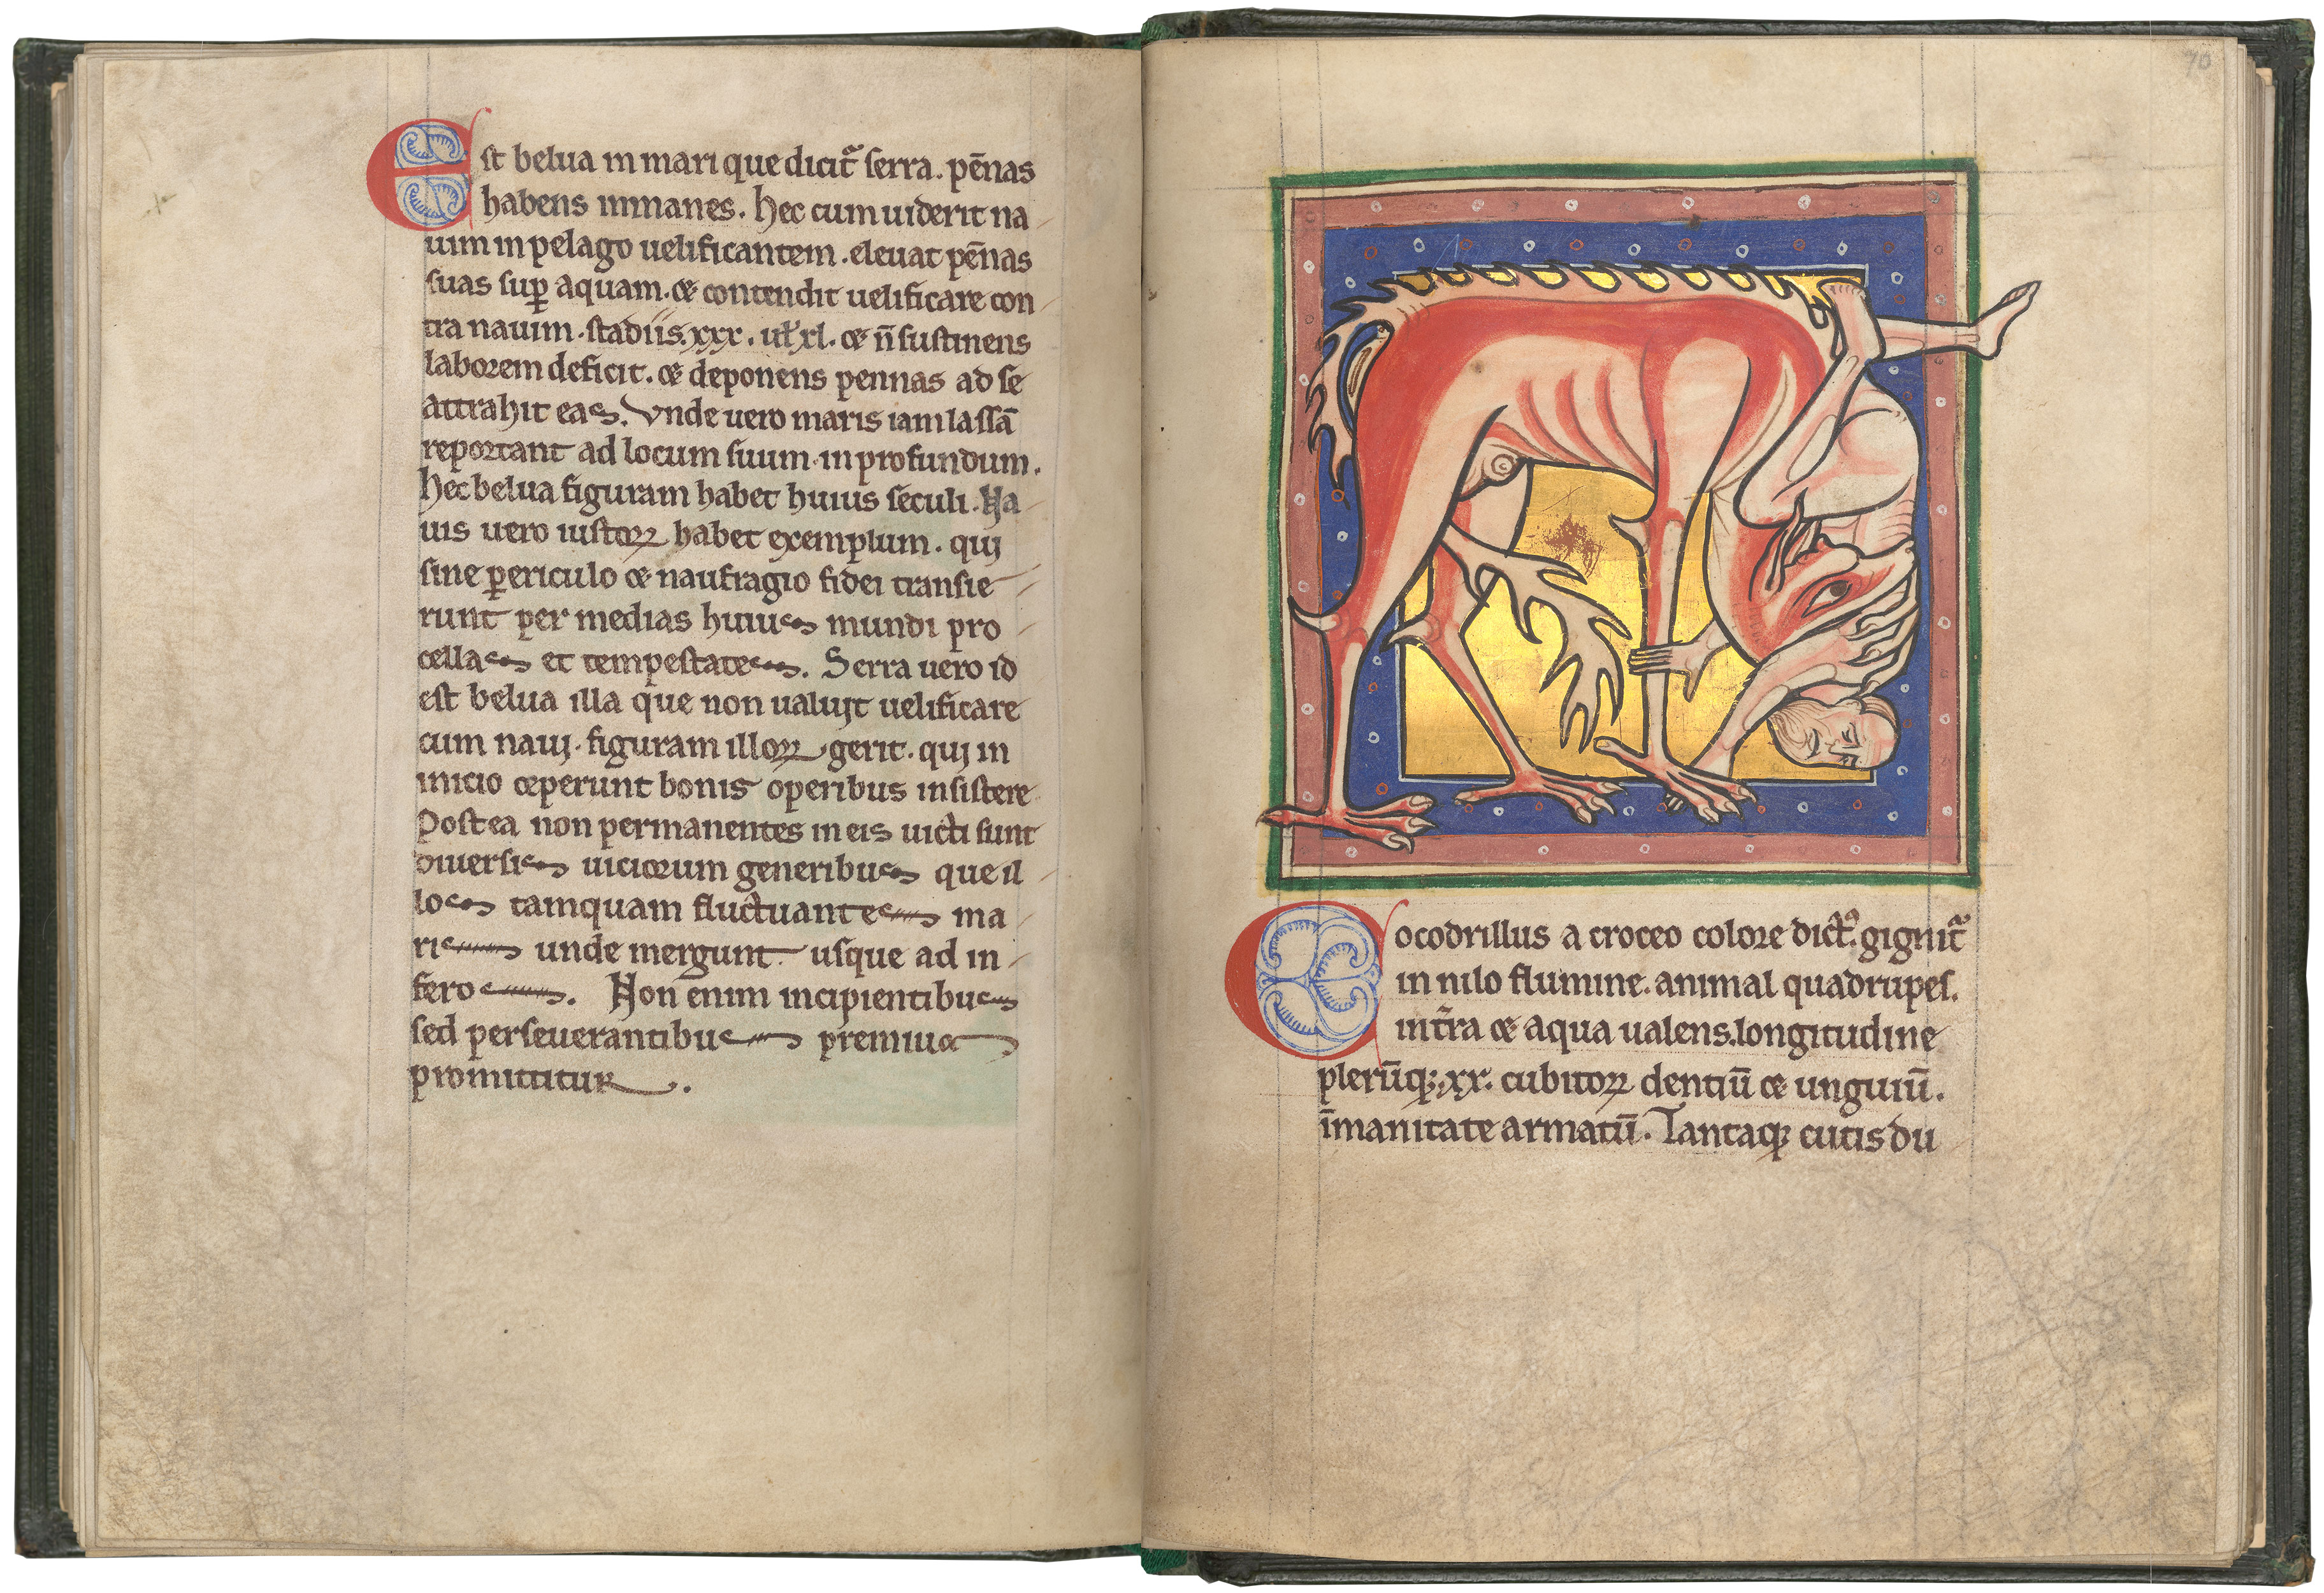 Est belua in mari que dicit᷑ serra. pēnas
habens inmanes. hec cum uiderit na
uim in pelago uelificantem. eleuat pēnas
suas suꝑ aquam. ⁊ contendit uelificare con
tra nauim. stadiis. xxx. uł xl. ⁊ n̄ sustinens
laborem deficit. ⁊ deponens pennas ad se
attrahit eas. Vnde uero maris iam lassā
reportant ad locum suum in profundum.
Hec belua figuram habet huius seculi. Na
uis uero iustoꝝ habet exemplum. qui
sine ꝑericulo ⁊ naufragio fidei transie
runt per medias huius mundi pro
cellas et tempestates. Serra uero id
est belua illa que non ualuit uelificare
cum naui. figuram illoꝝ gerit. qui in
inicio ceperunt bonis operibus insistere
Postea non permanentes in eis uicti sunt
diuersis uiciorum generibus que il
los tamquam fluctuantes ma
ris unde mergunt usque ad in
feros. Non enim incipientibus
sed perseuerantibus premium
promittitur.
70
Cocodrillus a croceo colore dict᷒. gignit᷑
in nilo flumine. animal quadrupes.
in t̄ra ⁊ aqua ualens. longitudine
plerūq;. xx. cubitoꝝ dentiū ⁊ unguiū.
īmanitate armatū. Tantaq; cutis du